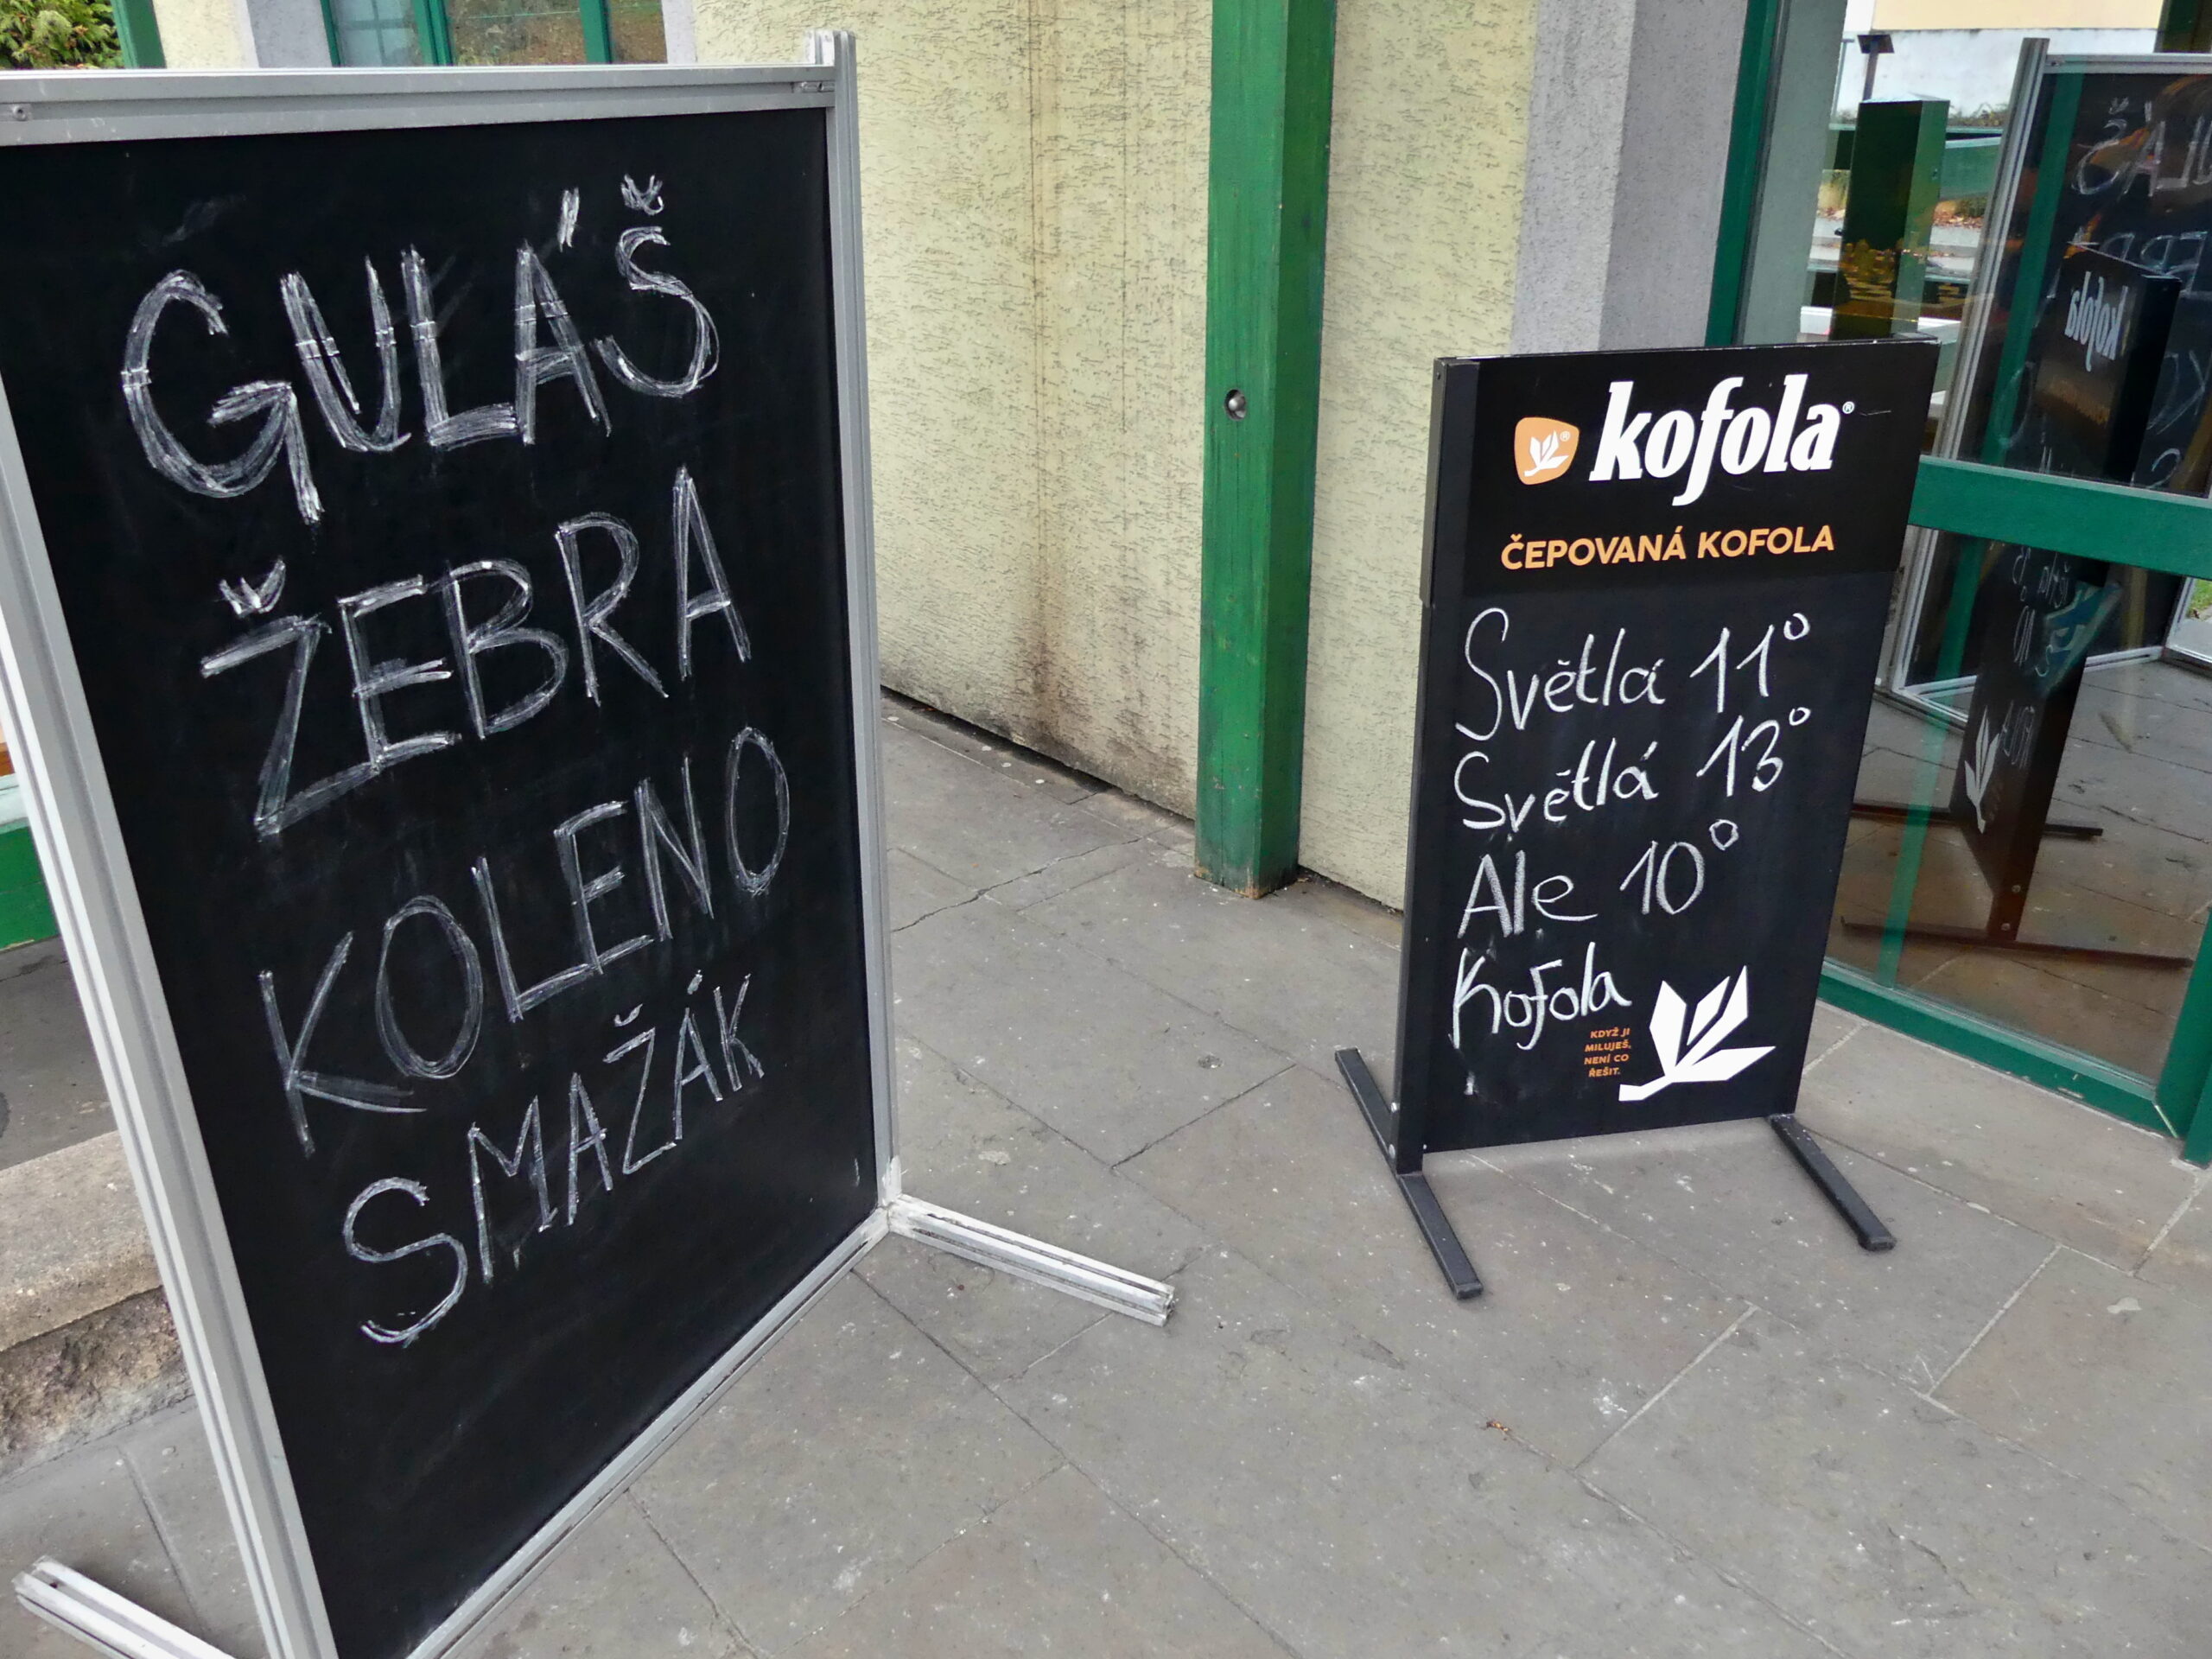 GULÁŠ
ŽEBRA
KOLENO
SMAŽÁK
kofola
ČEPOVANÁ KOFOLA
Světlá 11°
Světlá 13°
Ale 10°
Kofola
KDYŽ JI
MILUJEŠ,
NENÍ CO
ŘEŠIT.